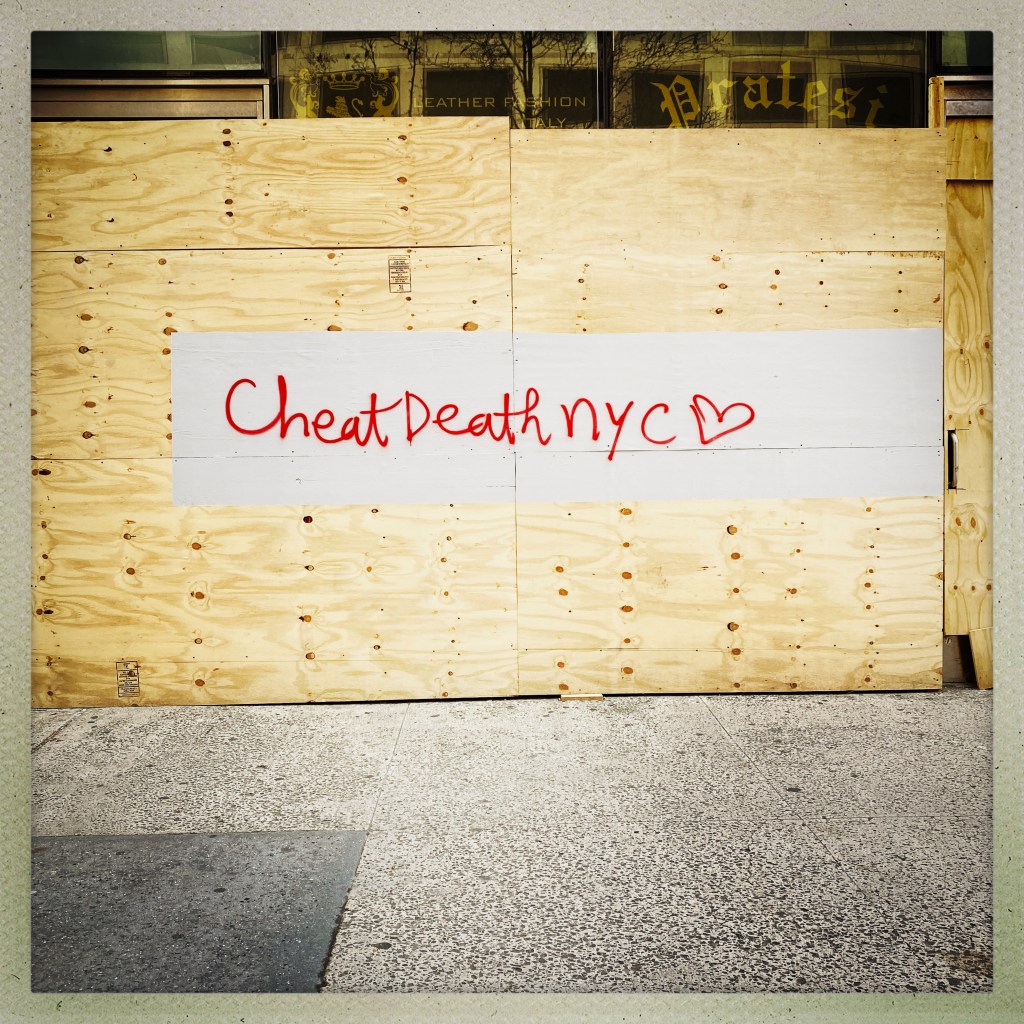 LEATHER FASHION
ITALY
Pratesi
Cheat Death nyc